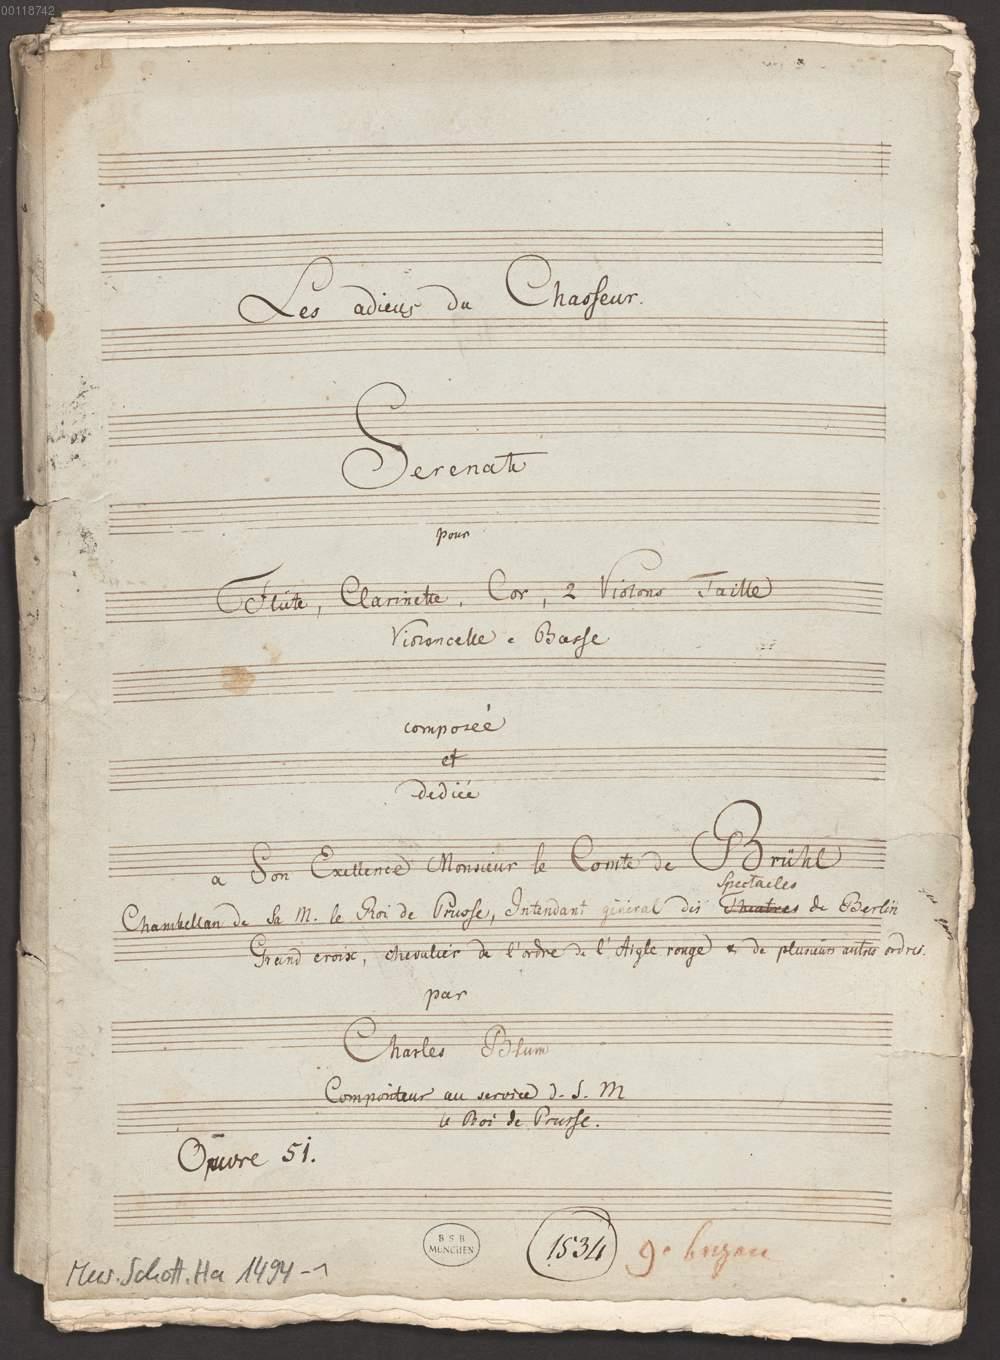 00118742
Les adieus du Chasseur.
Serenate
pour
Flûte, Clarinette, Cor, 2 Violons Taille
Violoncelle e Basse
composée
et
dediée
a Son Exellence Monsieur le Comte de Brühl
Spectacles
Chambellan de Sa M. le Roi de Prusse, Intendant général des Theatres de Berlin
Grand croix, chevalier de l'ordre de l'Aigle rouge & de plusieurs autres ordres.
par
Charles Blum
Compositeur au service d. S. M
le Roi de Prusse.
Oeuvre 51.
BSB
MÜNCHEN
1534
Mus. Schott. Ha 1494-1